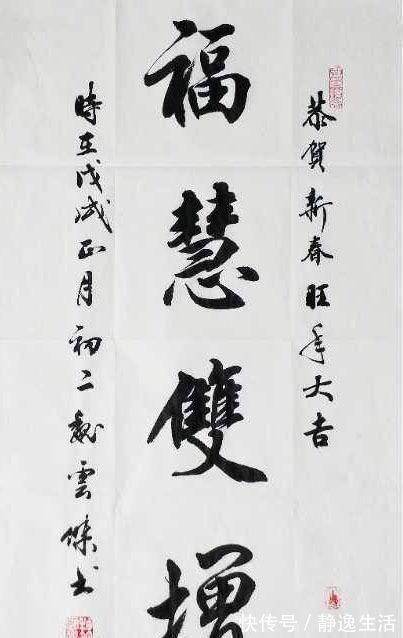 恭賀新春旺年大吉
福慧雙增
時在戊戌正月初二魏雲傑书
快传号 / 静逸生活